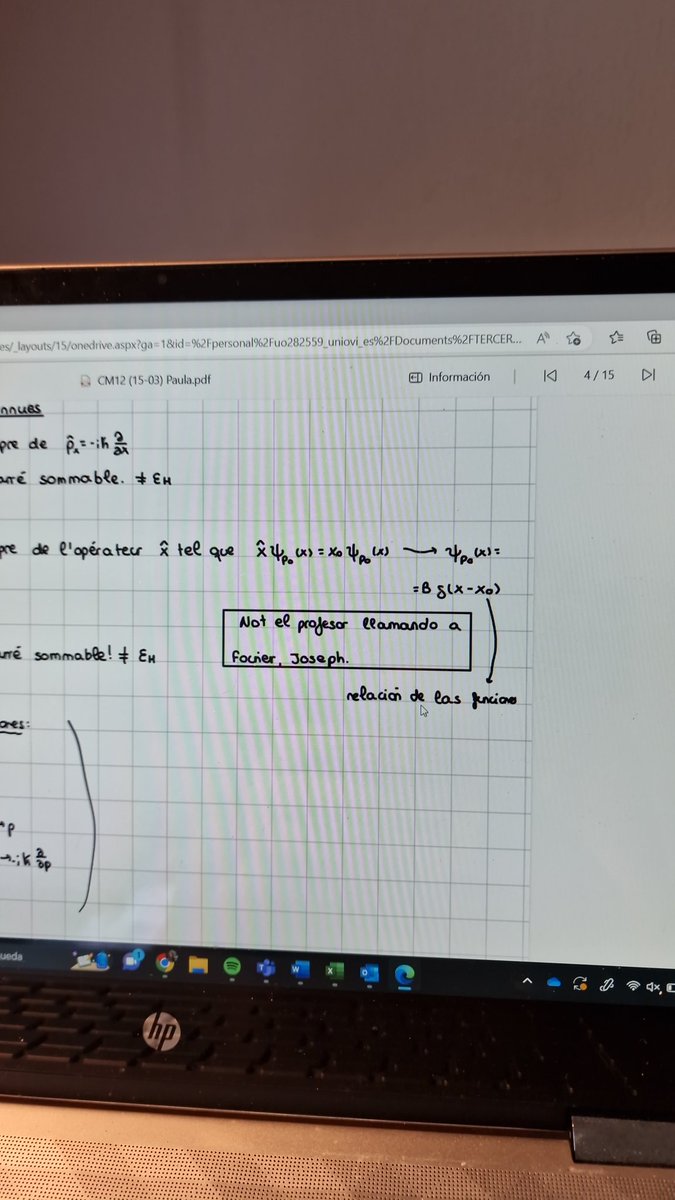 es/_layouts/15/onedrive.aspx?ga=1&id=%2Fpersonal%2Fuo282559_uniovi_es%2FDocuments%2FTERCER...
CM12 (15-03) Paula.pdf
Información
4 / 15
nnues
pre de p̂ₓ = -iħ ∂/∂x
arré sommable. ≠ Ɛн
pre de l'opérateur x̂ tel que x̂ψp₀(x) = x₀ψp₀(x) → ψp₀(x) =
= B δ(x-x₀)
Not el profesor llamando a
Fourier, Joseph.
rré sommable! ≠ Ɛн
relación de las funciones
ones:
p
→ iħ ∂/∂p
ueda
hp